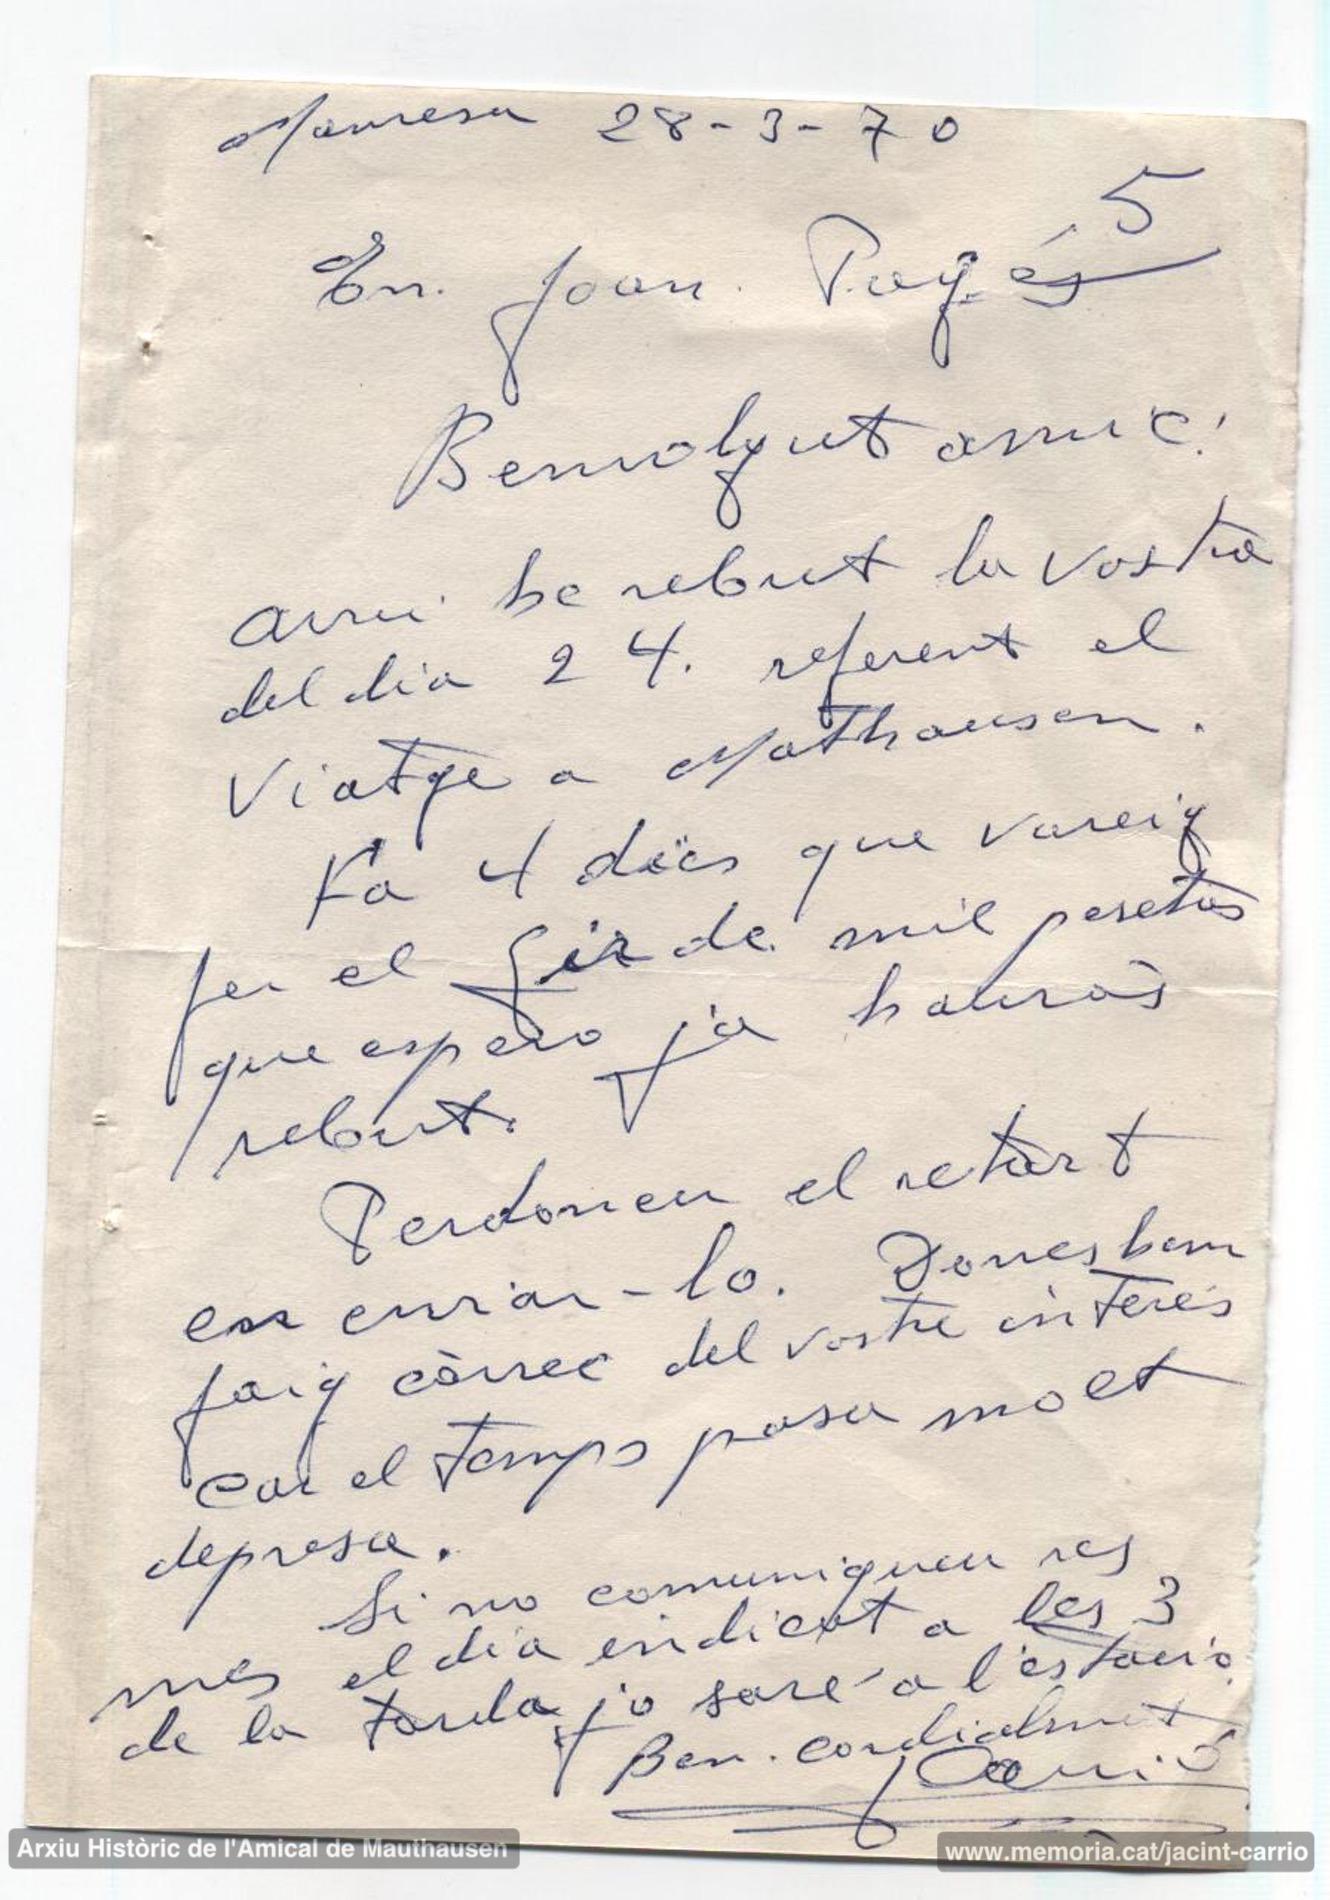 Manresa 28-3-70
5
En. Joan. Pagés
Benvolgut amic:
Avui he rebut la vostra
del dia 24. referent el
Viatge a Mathausen.
Fa 4 dies que vareig
fer el Gir de mil pesetas
que espero ja hauràs
rebut.
Perdoneu el retart
en enviar-lo. Doncs bem
faig càrrec del vostre interés
car el temps pasa molt
depresa.
Si no comuniqueu res
mes el dia indicat a les 3
de la tarda jo saré a l'estació.
Ben. cordialment
J Carrió
Arxiu Històric de l'Amical de Mauthausen
www.memoria.cat/jacint-carrio